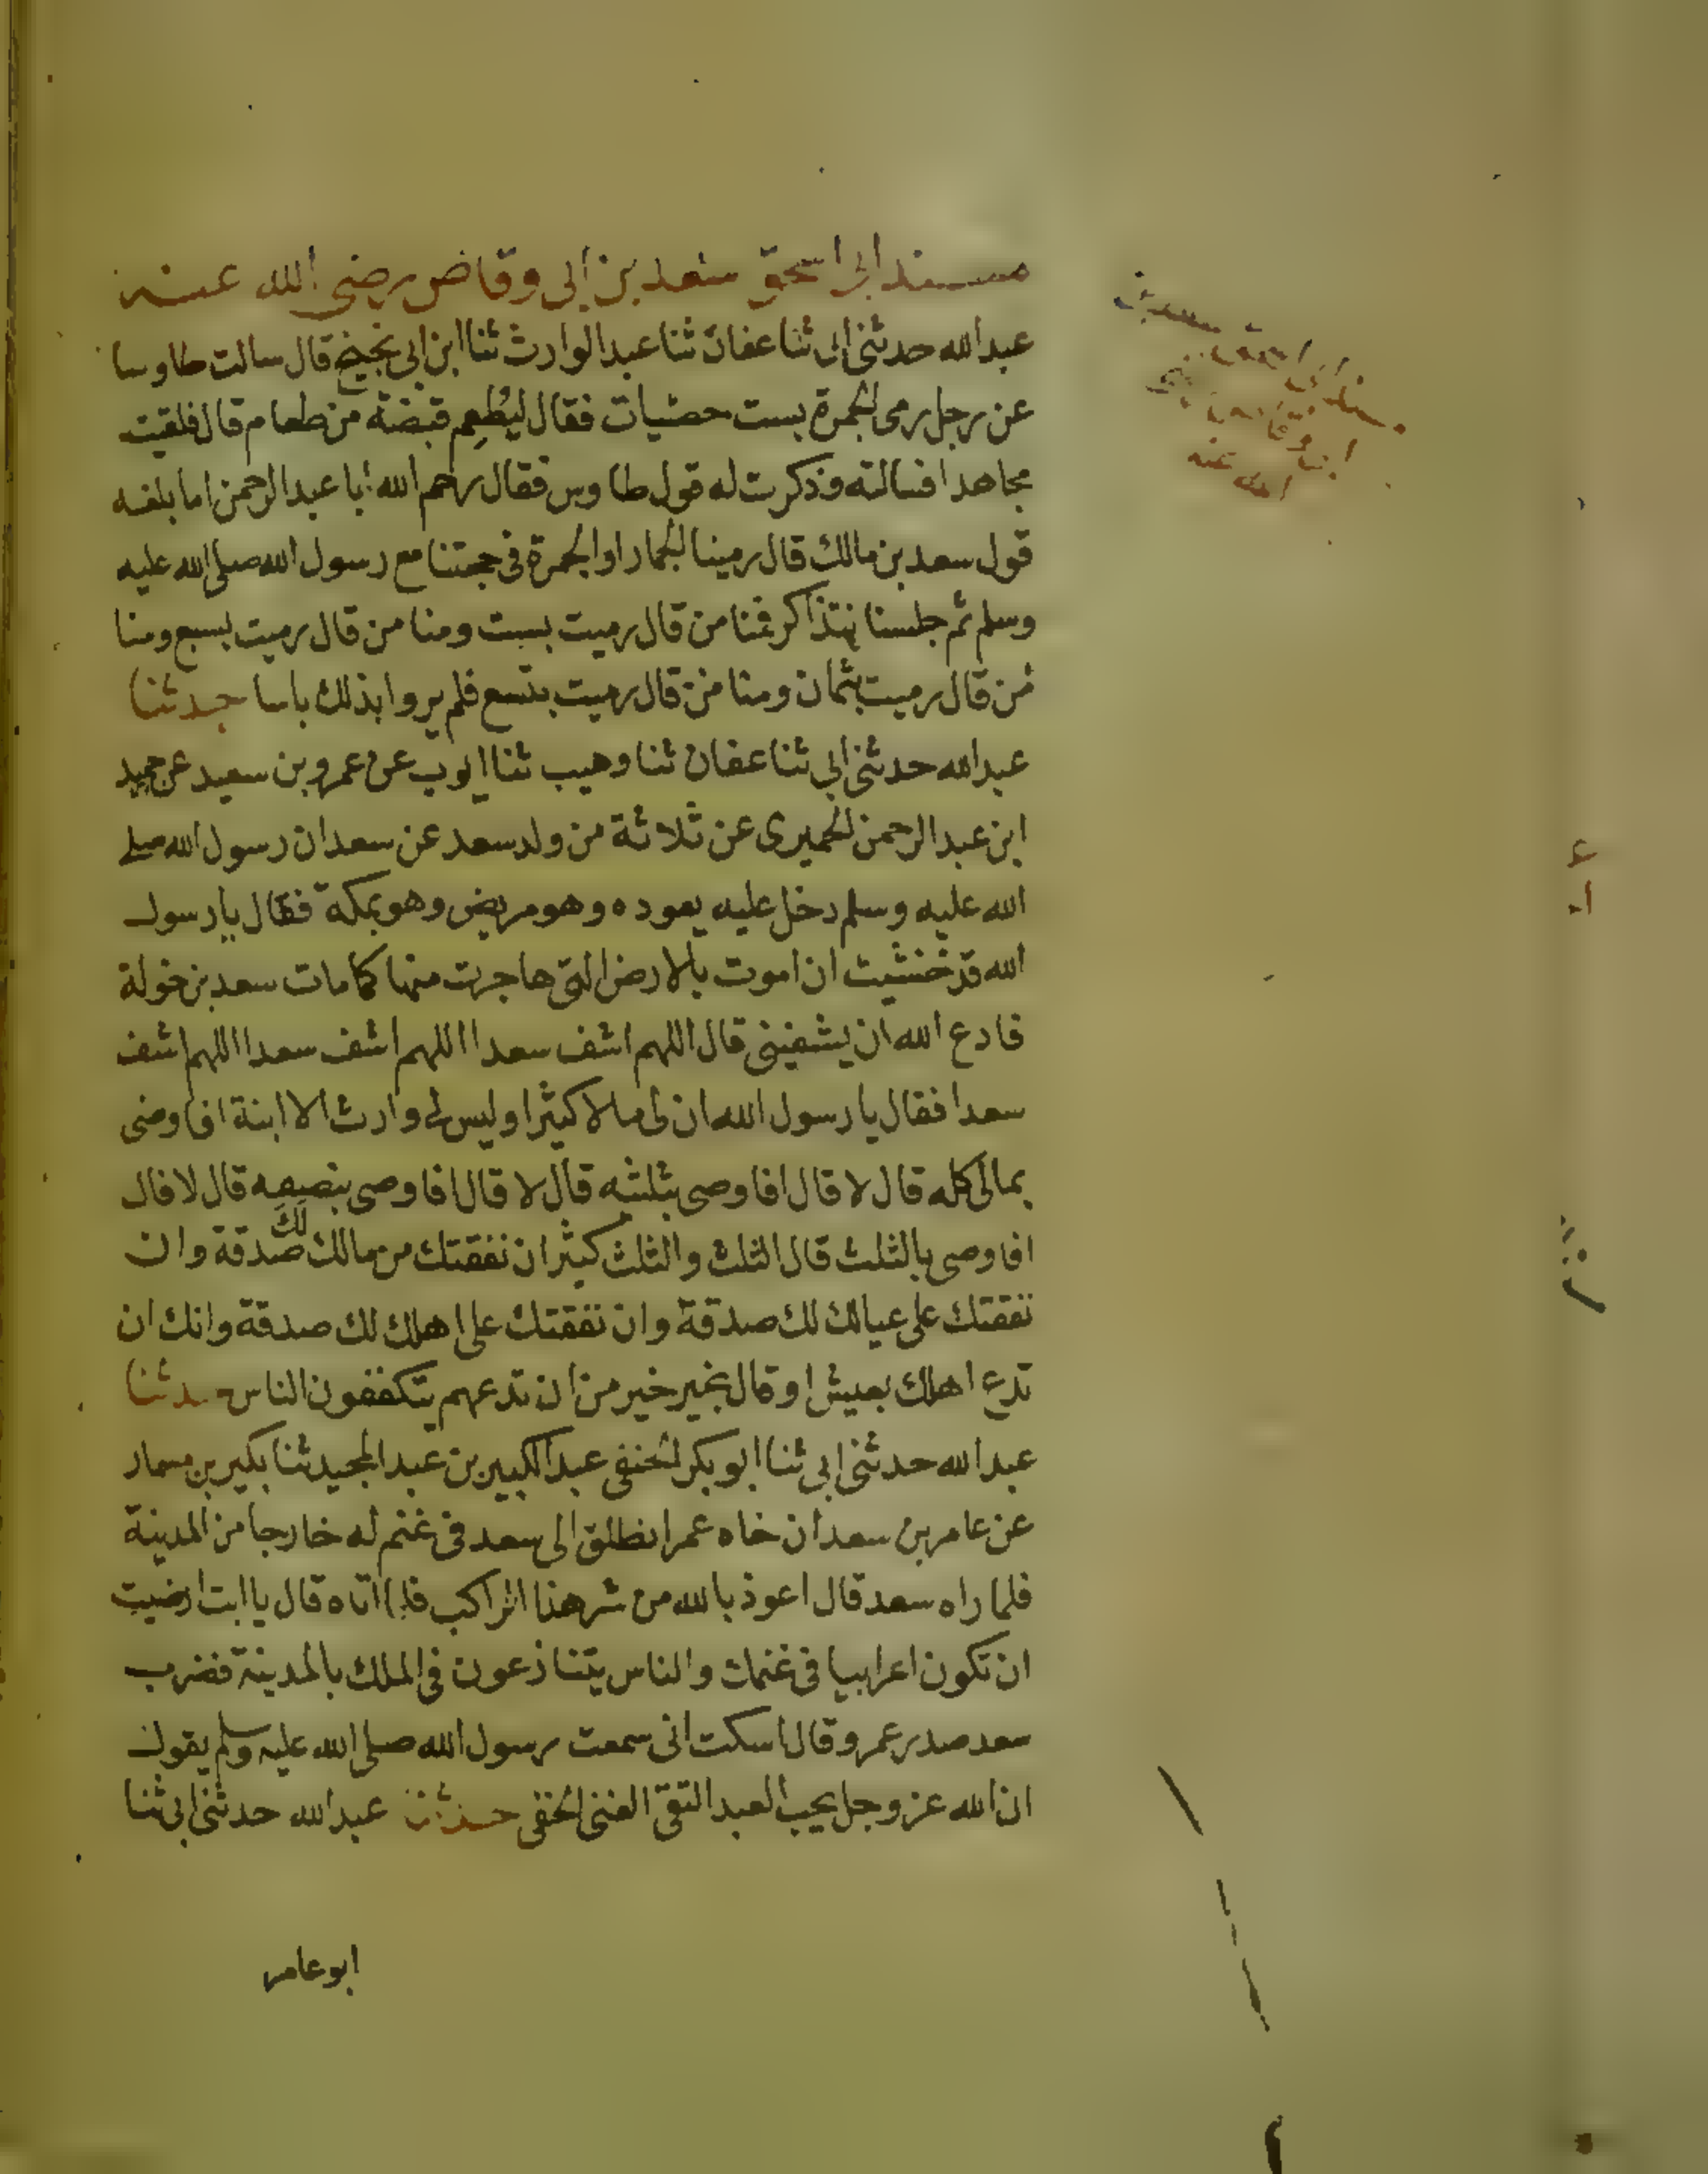 مسند ابى اسحق سعد بن ابى وقاص رضى الله عنه
عبدالله حدثنى ابى ثنا عفان ثنا عبد الوارث ثنا ابن ابى نجيح قال سالت طاوسا
عن رجل رمى الجمرة بست حصيات فقال ليُطعِم قبضة من طعام قال فلقيت
مجاهدا فسالته وذكرت له قول طاوس فقال رحم الله ابا عبد الرحمن اما بلغه
قول سعد بن مالك قال رمينا الجمار او الجمرة فى حجتنا مع رسول الله صلى الله عليه
وسلم ثم جلسنا نتذاكر فمنا من قال رميت بست ومنا من قال رميت بسبع ومنا
من قال رميت بثمان ومنا من قال رميت بتسع فلم يروا بذلك باسا حدثنا
عبدالله حدثنى ابى ثنا عفان ثنا وهيب ثنا ايوب عن عمرو بن سعيد عن حميد
ابن عبد الرحمن الحميرى عن ثلاثة من ولد سعد عن سعد ان رسول الله صلى
الله عليه وسلم دخل عليه يعوده وهو مريض وهو بمكة فقال يا رسول
الله قد خشيت ان اموت بالارض التى هاجرت منها كما مات سعد بن خولة
فادع الله ان يشفينى قال اللهم اشف سعدا اللهم اشف سعدا اللهم اشف
سعدا فقال يا رسول الله ان لى مالا كثيرا وليس لى وارث الا ابنة افاوصى
بمالى كله قال لا قال افاوصى بثلثيه قال لا قال افاوصى بنصفه قال لا قال
افاوصى بالثلث قال الثلث والثلث كثير ان نفقتك من مالك لَكَ صدقة وان
نفقتك على عيالك لك صدقة وان نفقتك على اهلك لك صدقة وانك ان
تدع اهلك بعيش او قال بخير خير من ان تدعهم يتكففون الناس حدثنا
عبدالله حدثنى ابى ثنا ابو بكر الحنفى عبد الكبير بن عبد المجيد ثنا بكير بن مسمار
عن عامر بن سعد ان خاه عمر انطلق الى سعد فى غنم له خارجا من المدينة
فلما راه سعد قال اعوذ بالله من شر هذا الراكب فلما اتاه قال يا ابت ارضيت
ان تكون اعرابيا فى غنمك والناس يتنازعون فى الملك بالمدينة فضرب
سعد صدر عمر وقال اسكت انى سمعت رسول الله صلى الله عليه وسلم يقول
ان الله عز وجل يحب العبد التقى الغنى الخفى حدثنا عبد الله حدثنى ابى ثنا
ابو عامر
مسند ابى اسحق سعد بن
ابى وقاص رضى
الله عنه